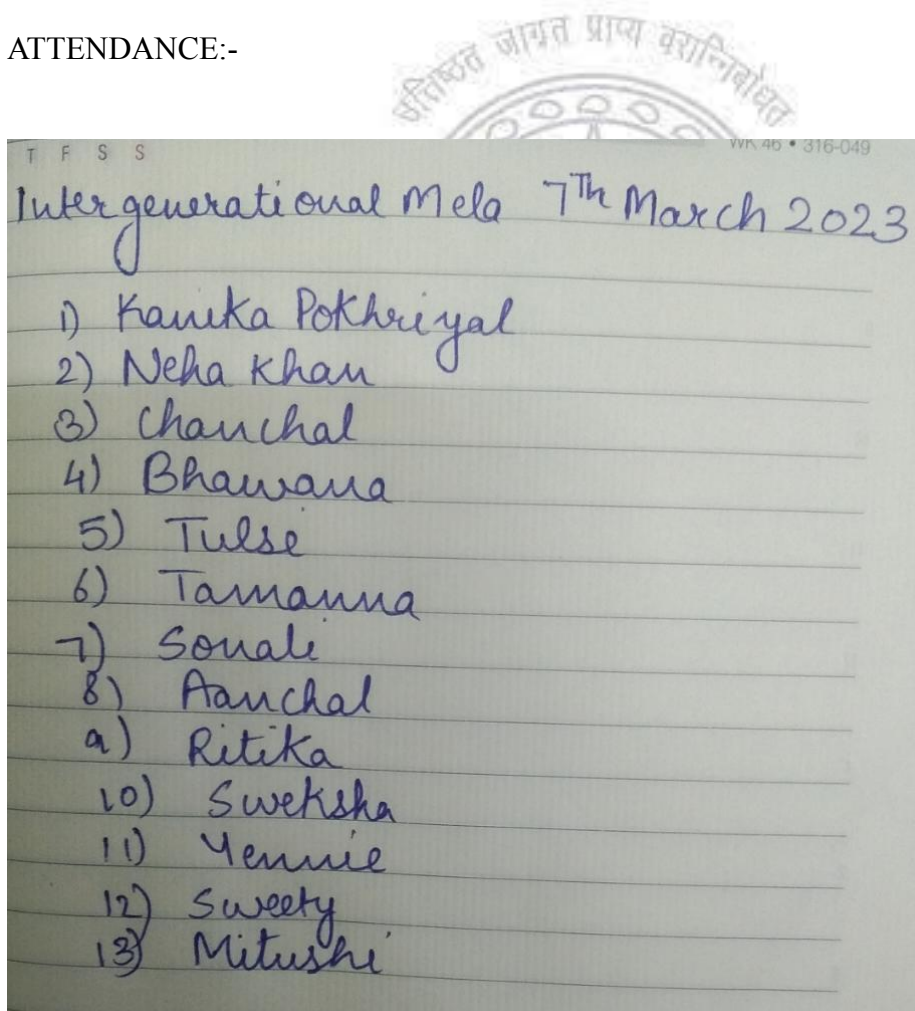 ATTENDANCE:-
उत्तिष्ठत जाग्रत प्राप्य वरान्निबोधत
T F S S
WK 46 • 316-049
Intergenerational Mela 7Th March 2023
1) Kanika Pokhriyal
2) Neha Khan
3) Chanchal
4) Bhawana
5) Tulsi
6) Tamanna
7) Sonali
8) Aanchal
9) Ritika
10) Sweksha
11) Yennie
12) Sweety
13) Mitushi